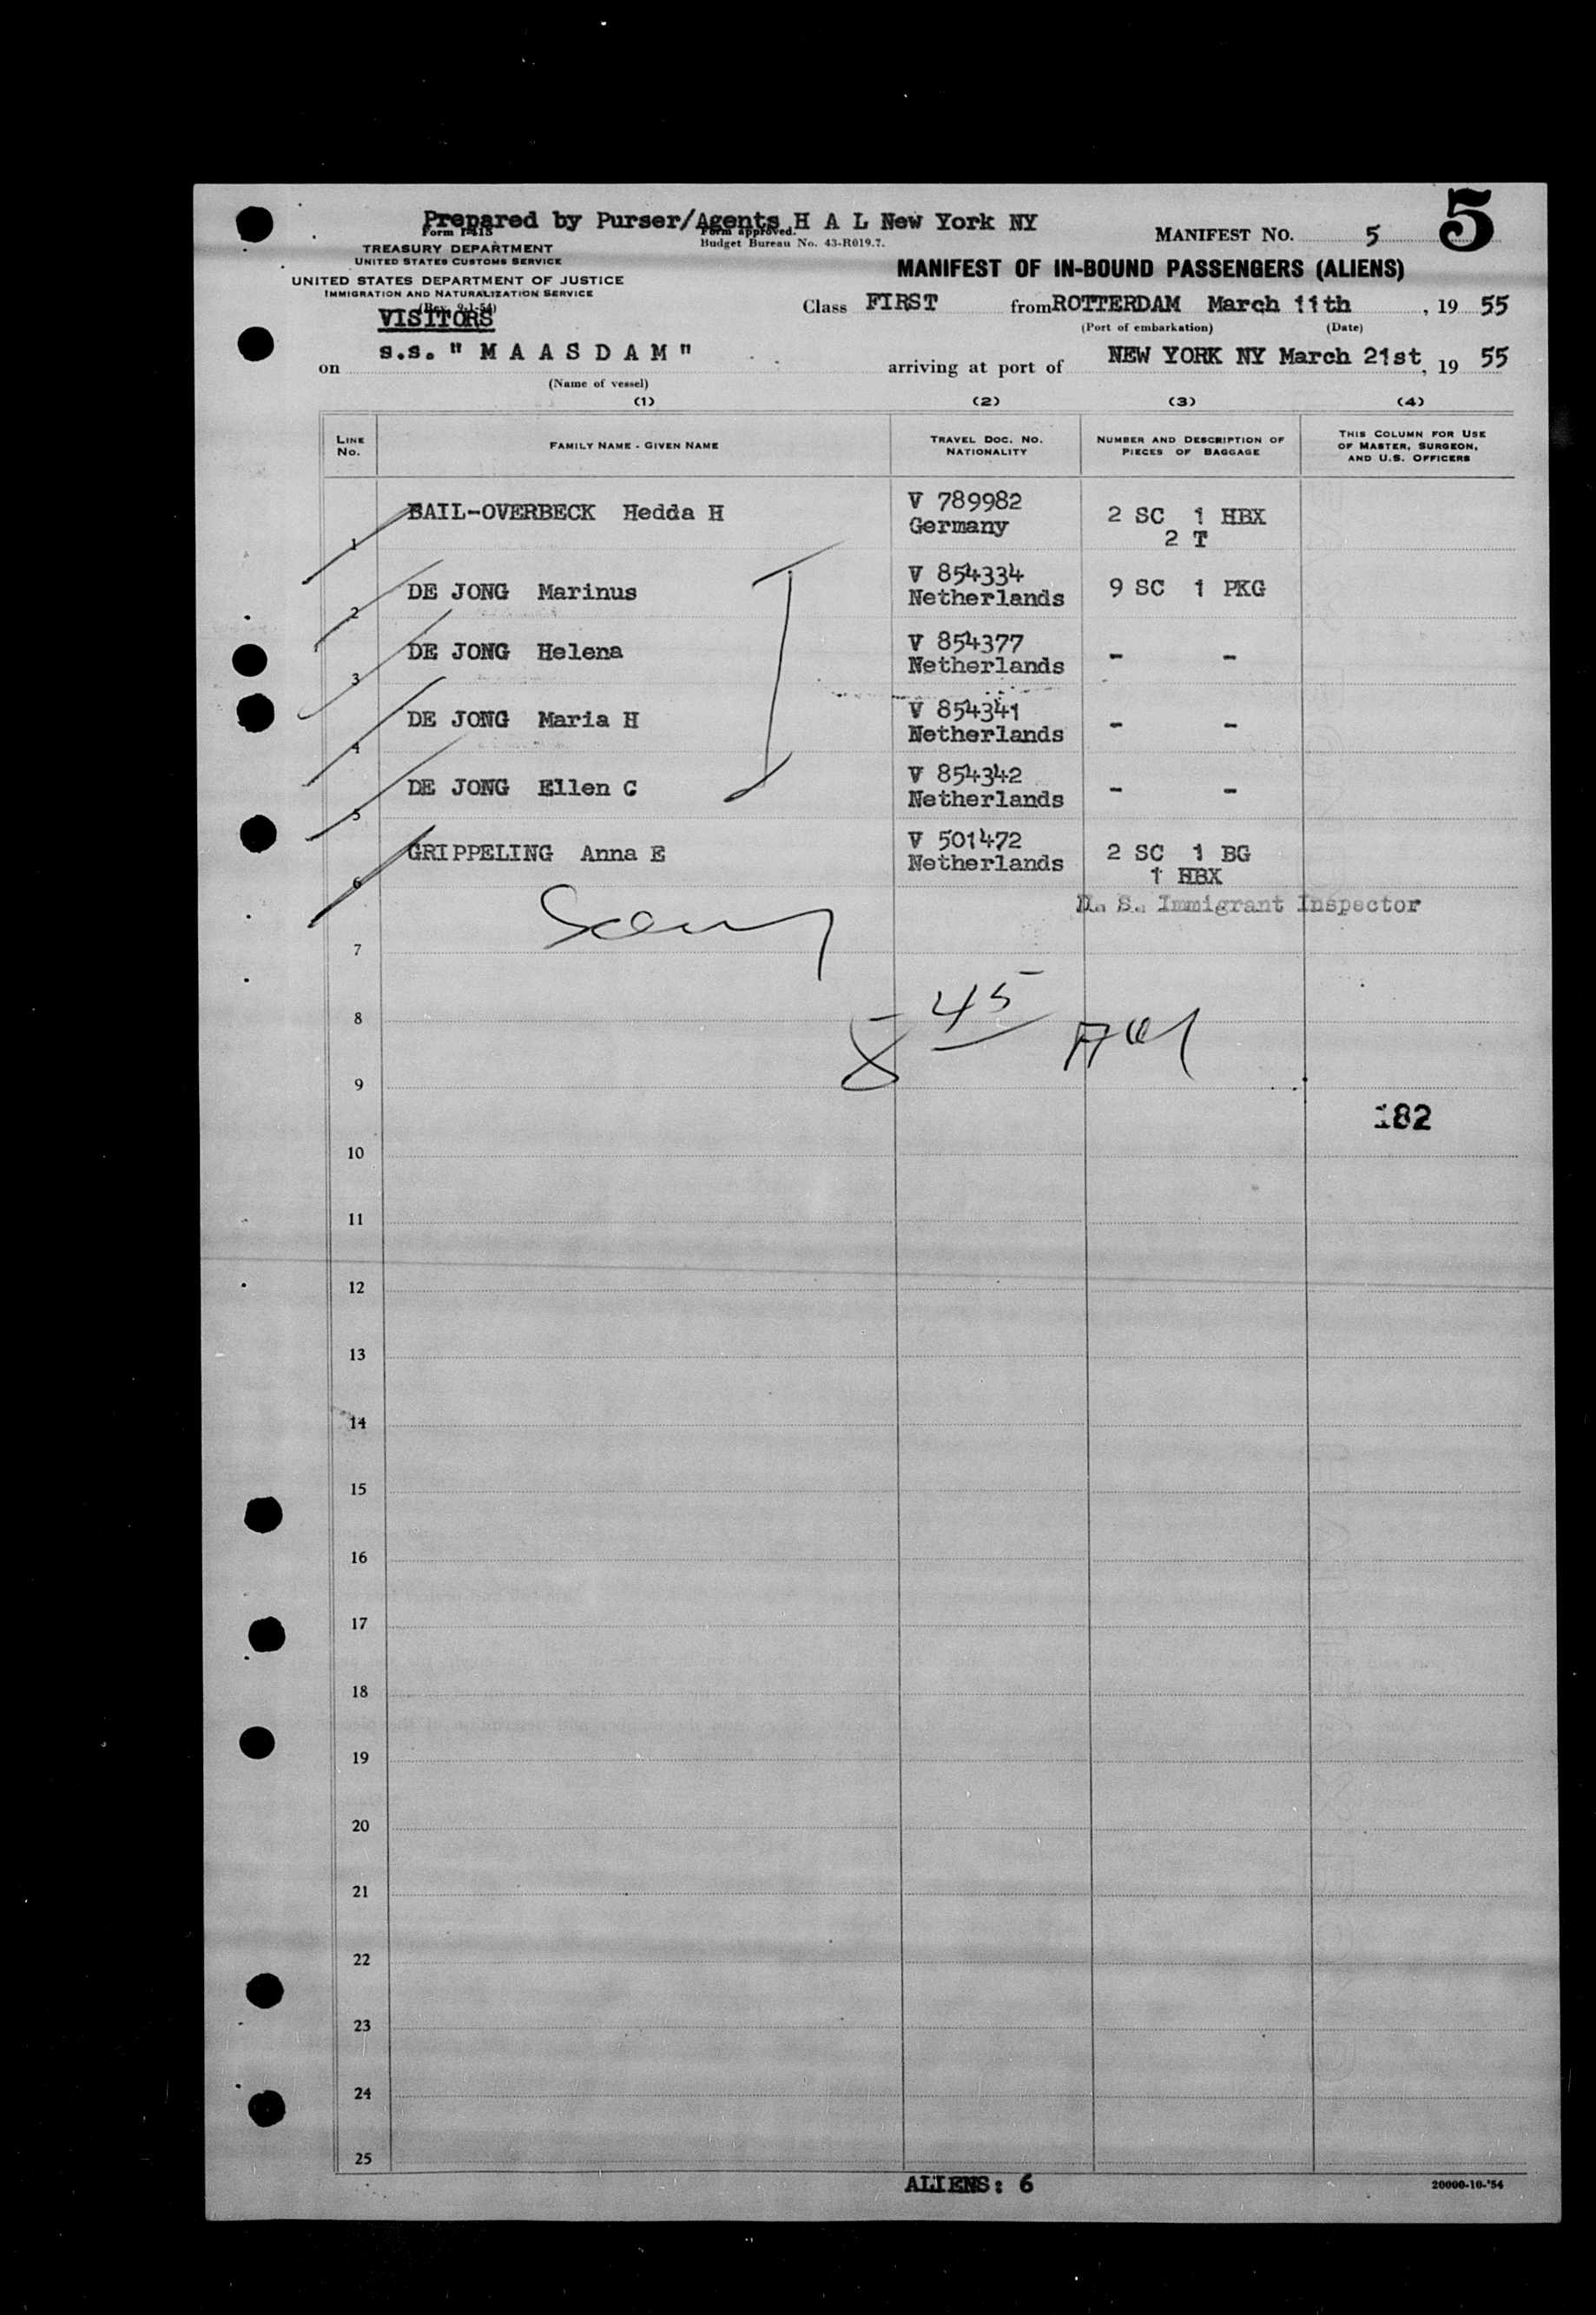 Prepared by Purser/Agents H A L New York NY
Form I-418
Form approved.
Budget Bureau No. 43-R019.7.
MANIFEST NO. 5
5
TREASURY DEPARTMENT
UNITED STATES CUSTOMS SERVICE
UNITED STATES DEPARTMENT OF JUSTICE
IMMIGRATION AND NATURALIZATION SERVICE
(Rev. 9-1-54)
VISITORS
MANIFEST OF IN-BOUND PASSENGERS (ALIENS)
Class FIRST from ROTTERDAM March 11th, 19 55
(Port of embarkation) (Date)
on s.s. " M A A S D A M " arriving at port of NEW YORK NY March 21st, 19 55
(Name of vessel)
(1) (2) (3) (4)
LINE No. FAMILY NAME - GIVEN NAME TRAVEL DOC. NO. NATIONALITY NUMBER AND DESCRIPTION OF PIECES OF BAGGAGE THIS COLUMN FOR USE OF MASTER, SURGEON, AND U.S. OFFICERS
1 BAIL-OVERBECK Hedda H V 789982 Germany 2 SC 1 HBX 2 T
2 DE JONG Marinus V 854334 Netherlands 9 SC 1 PKG
3 DE JONG Helena V 854377 Netherlands - -
4 DE JONG Maria H V 854341 Netherlands - -
5 DE JONG Ellen C V 854342 Netherlands - -
6 GRIPPELING Anna E V 501472 Netherlands 2 SC 1 BG 1 HBX
U. S. Immigrant Inspector
7
8 45
8
9
182
10
11
12
13
14
15
16
17
18
19
20
21
22
23
24
25
ALIENS: 6
20000-10-'54